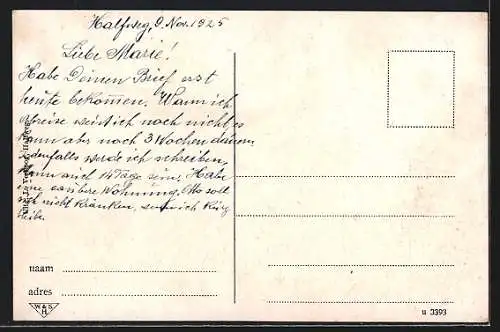 Halfweg, 9. Nov. 1925
Liebe Marie!
Habe Deinen Brief erst
heute bekommen. Wann ich
abreise weiß ich noch nicht, es
kann aber noch 3 Wochen dauern
jedenfalls werde ich schreiben,
kann auch 14 Tage sein. Habe
eine saubere Wohnung. Also soll
nicht kränken, wenn ich
naam
adres
W & S
H
u 3393